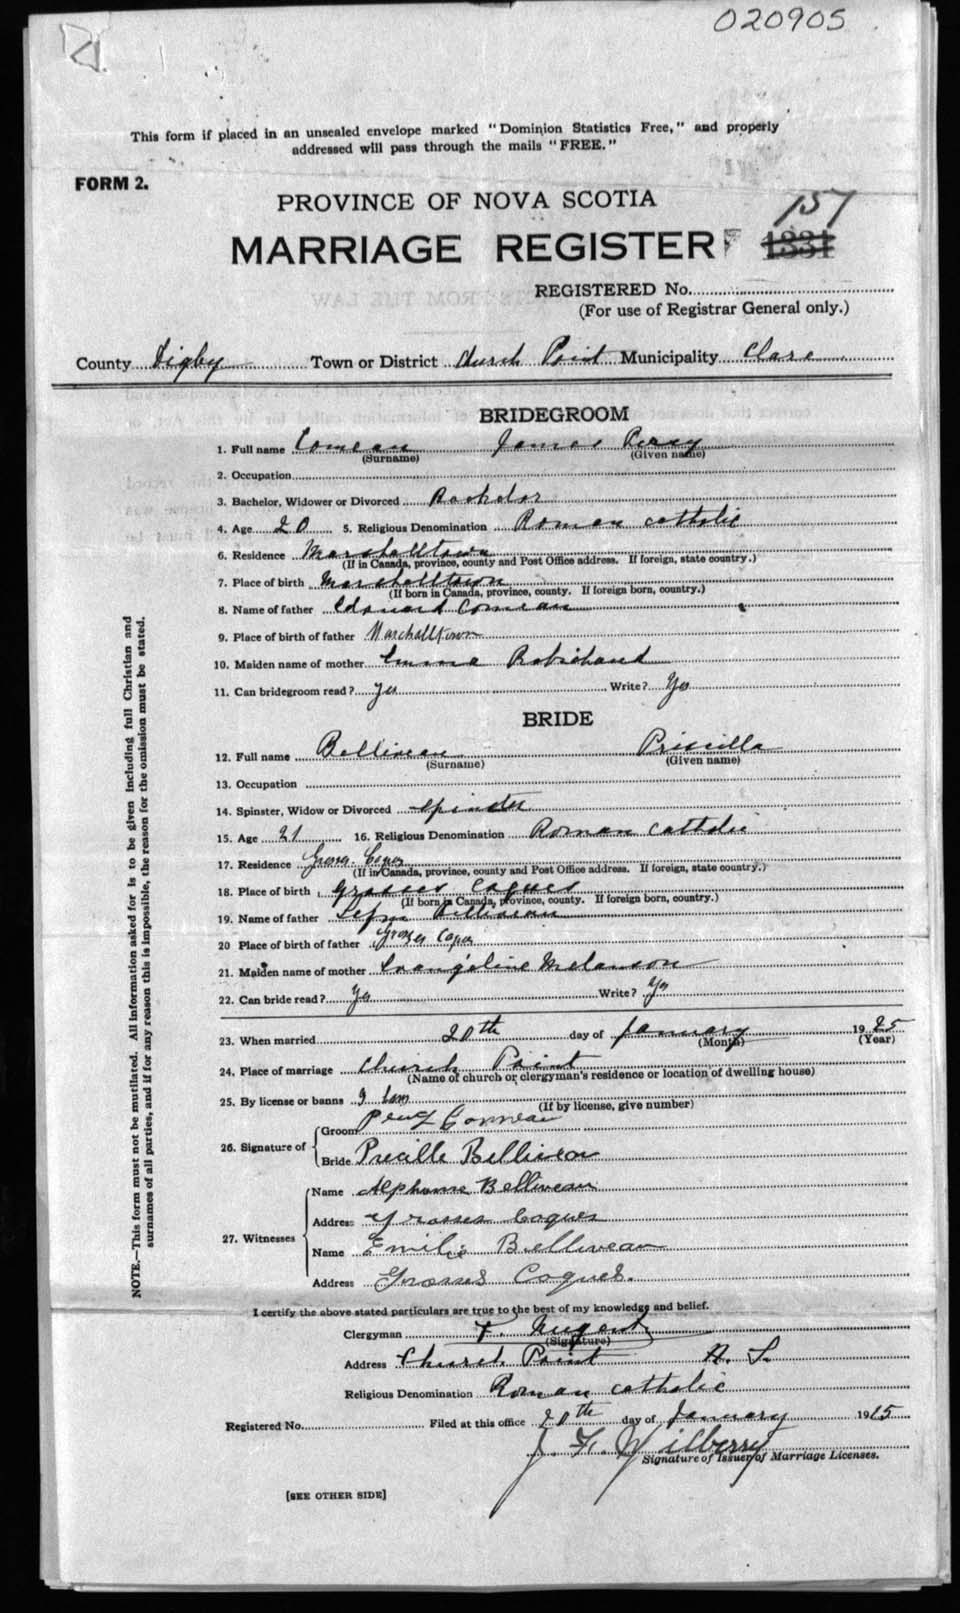 020905
This form if placed in an unsealed envelope marked "Dominion Statistics Free," and properly
addressed will pass through the mails "FREE."
FORM 2.
PROVINCE OF NOVA SCOTIA
157
MARRIAGE REGISTER 1331
REGISTERED No.
(For use of Registrar General only.)
County Digby Town or District Church Point Municipality Clare
BRIDEGROOM
1. Full name Comeau James Percy
(Surname) (Given name)
2. Occupation
3. Bachelor, Widower or Divorced Bachelor
4. Age 20 5. Religious Denomination Roman Catholic
6. Residence Marshalltown
(If in Canada, province, county and Post Office address. If foreign, state country.)
7. Place of birth Marshalltown
(If born in Canada, province, county. If foreign born, country.)
8. Name of father Edouard Comeau
9. Place of birth of father Marshalltown
10. Maiden name of mother Emma Robichaud
11. Can bridegroom read? Yes Write? Yes
BRIDE
12. Full name Belliveau Priscilla
(Surname) (Given name)
13. Occupation
14. Spinster, Widow or Divorced Spinster
15. Age 21 16. Religious Denomination Roman Catholic
17. Residence Grosses Coques
(If in Canada, province, county and Post Office address. If foreign, state country.)
18. Place of birth Grosses Coques
(If born in Canada, province, county. If foreign born, country.)
19. Name of father Belliveau
20 Place of birth of father Grosses Coques
21. Maiden name of mother Evangeline Melanson
22. Can bride read? Yes Write? Yes
23. When married 20th day of January 1925
(Month) (Year)
24. Place of marriage Church Point
(Name of church or clergyman's residence or location of dwelling house)
25. By license or banns
(If by license, give number)
26. Signature of Groom Percy Comeau
Bride Precille Belliveau
27. Witnesses Name Alphonse Belliveau
Address Grosses Coques
Name Emilie Belliveau
Address Grosses Coques.
I certify the above stated particulars are true to the best of my knowledge and belief.
Clergyman F. Nugent
(Signature)
Address Church Point N. S.
Religious Denomination Roman Catholic
Registered No. Filed at this office 20th day of January 1925
J. H.
Signature of Issuer of Marriage Licenses.
[SEE OTHER SIDE]
NOTE.—This form must not be mutilated. All information asked for is to be given including full Christian and
surnames of all parties, and if for any reason this is impossible, the reason for the omission must be stated.